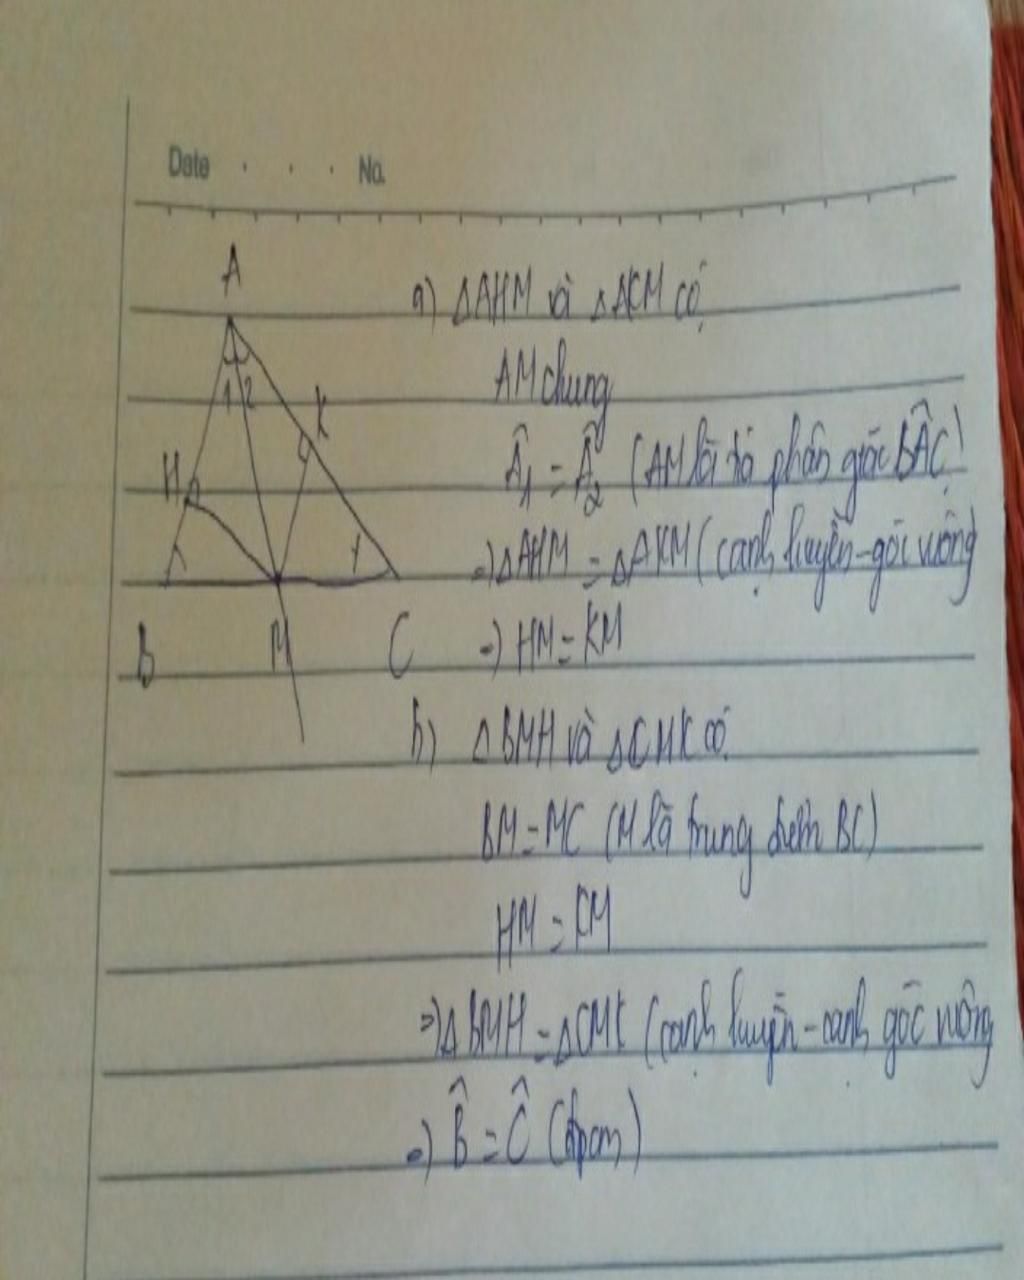 Date . . . No.
A
a) ΔAHM và ΔAKM có
AM chung
1 2
K
Â₁ = Â₂ (AM là tia phân giác BÂC)
H
=) ΔAHM = ΔAKM (cạnh huyền - góc vuông
1
B M C
=) HM = KM
b) ΔBMH và ΔCMK có
BM = MC (M là trung điểm BC)
HM = KM
=) ΔBMH = ΔCMK (cạnh huyền - cạnh góc vuông
=) B̂ = Ĉ (đpcm)